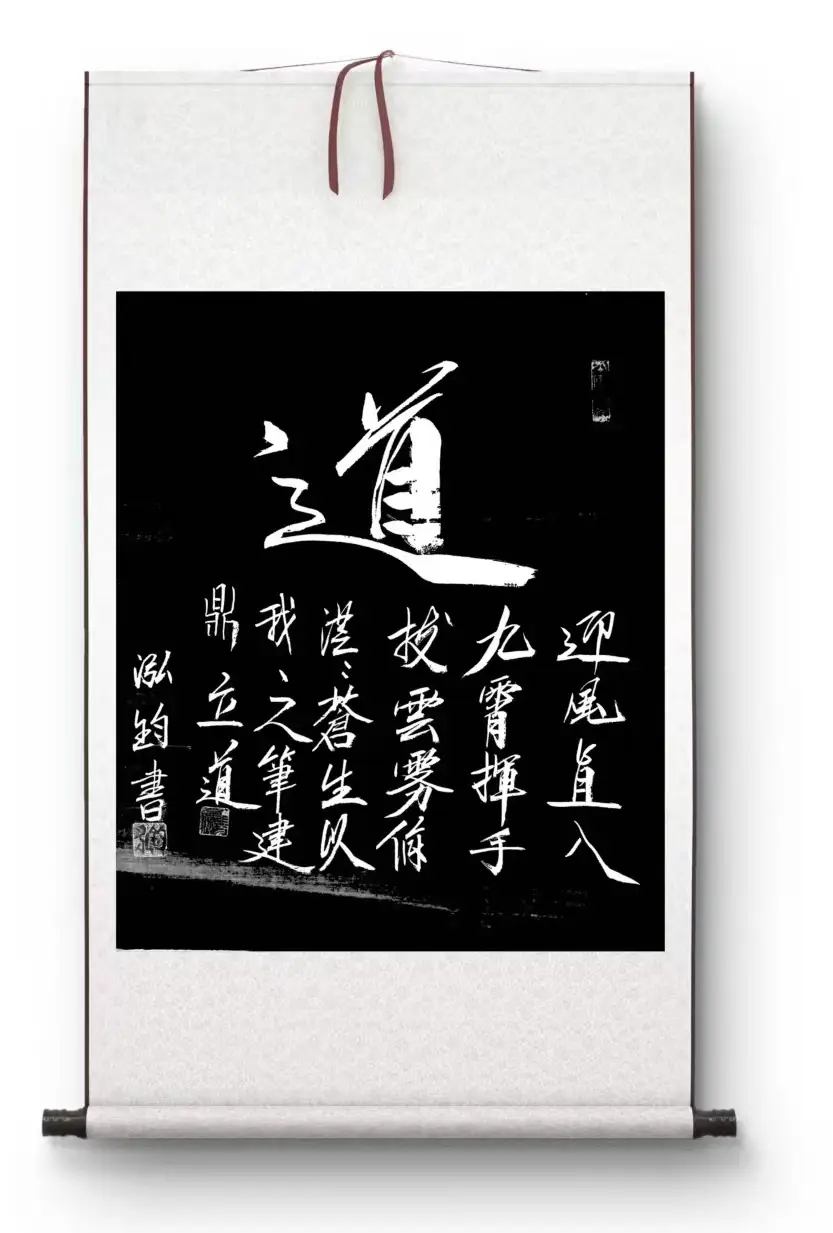 道
迎風直入
九霄揮手
拔雲雾俯
茫〻蒼生以
我〻之筆建
鼎立道
泓鈞書